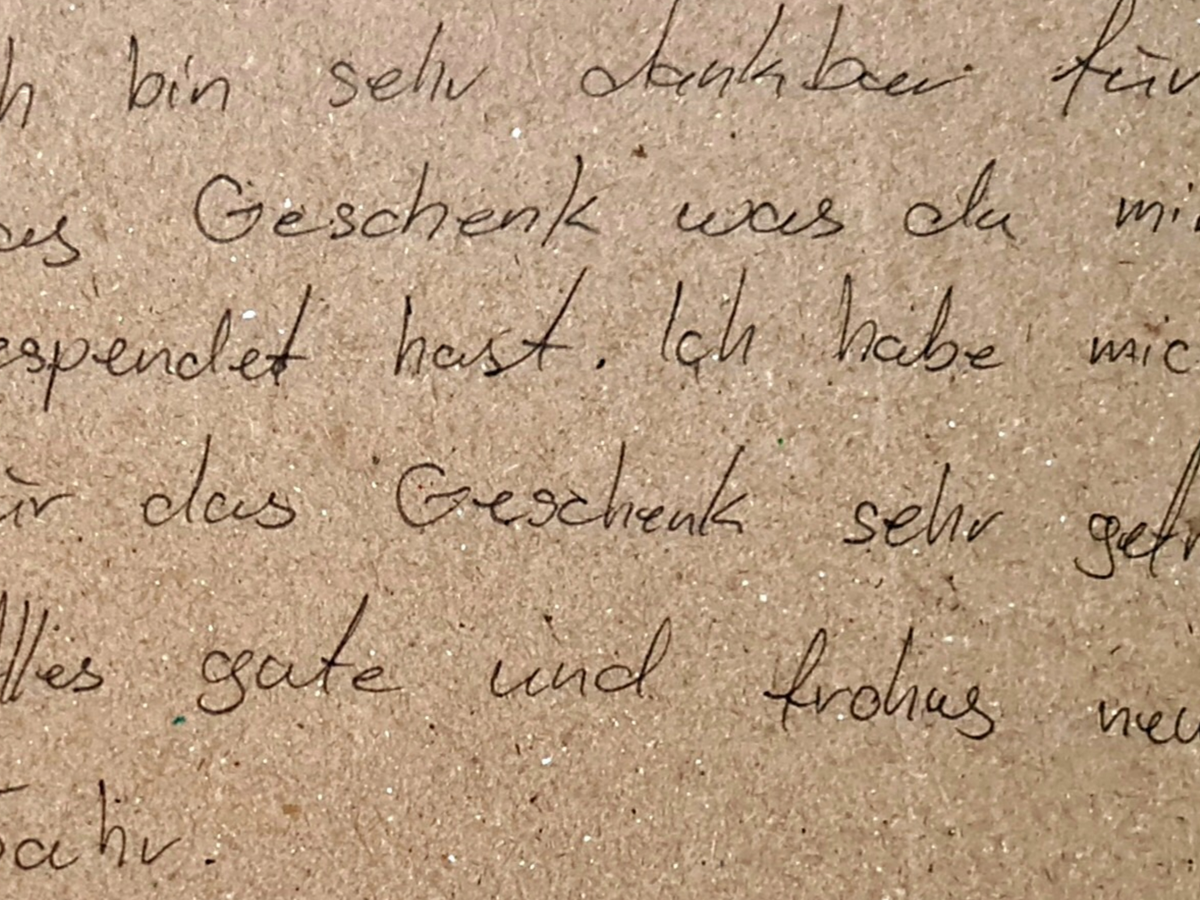 h bin sehr dankbar für
as Geschenk was du mir
espendet hast. Ich habe mic
ür das Geschenk sehr gefr
lles gute und frohus neu
Jahr.